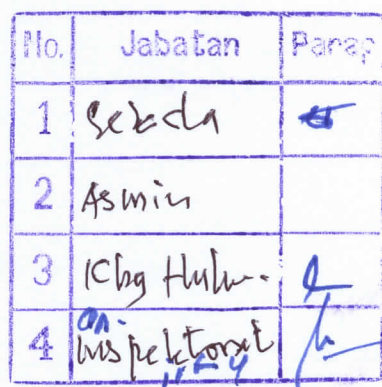 No. Jabatan Paraf
1 Sekda
2 Asmin
3 Kbg Hukum.
4 an. Inspektorat